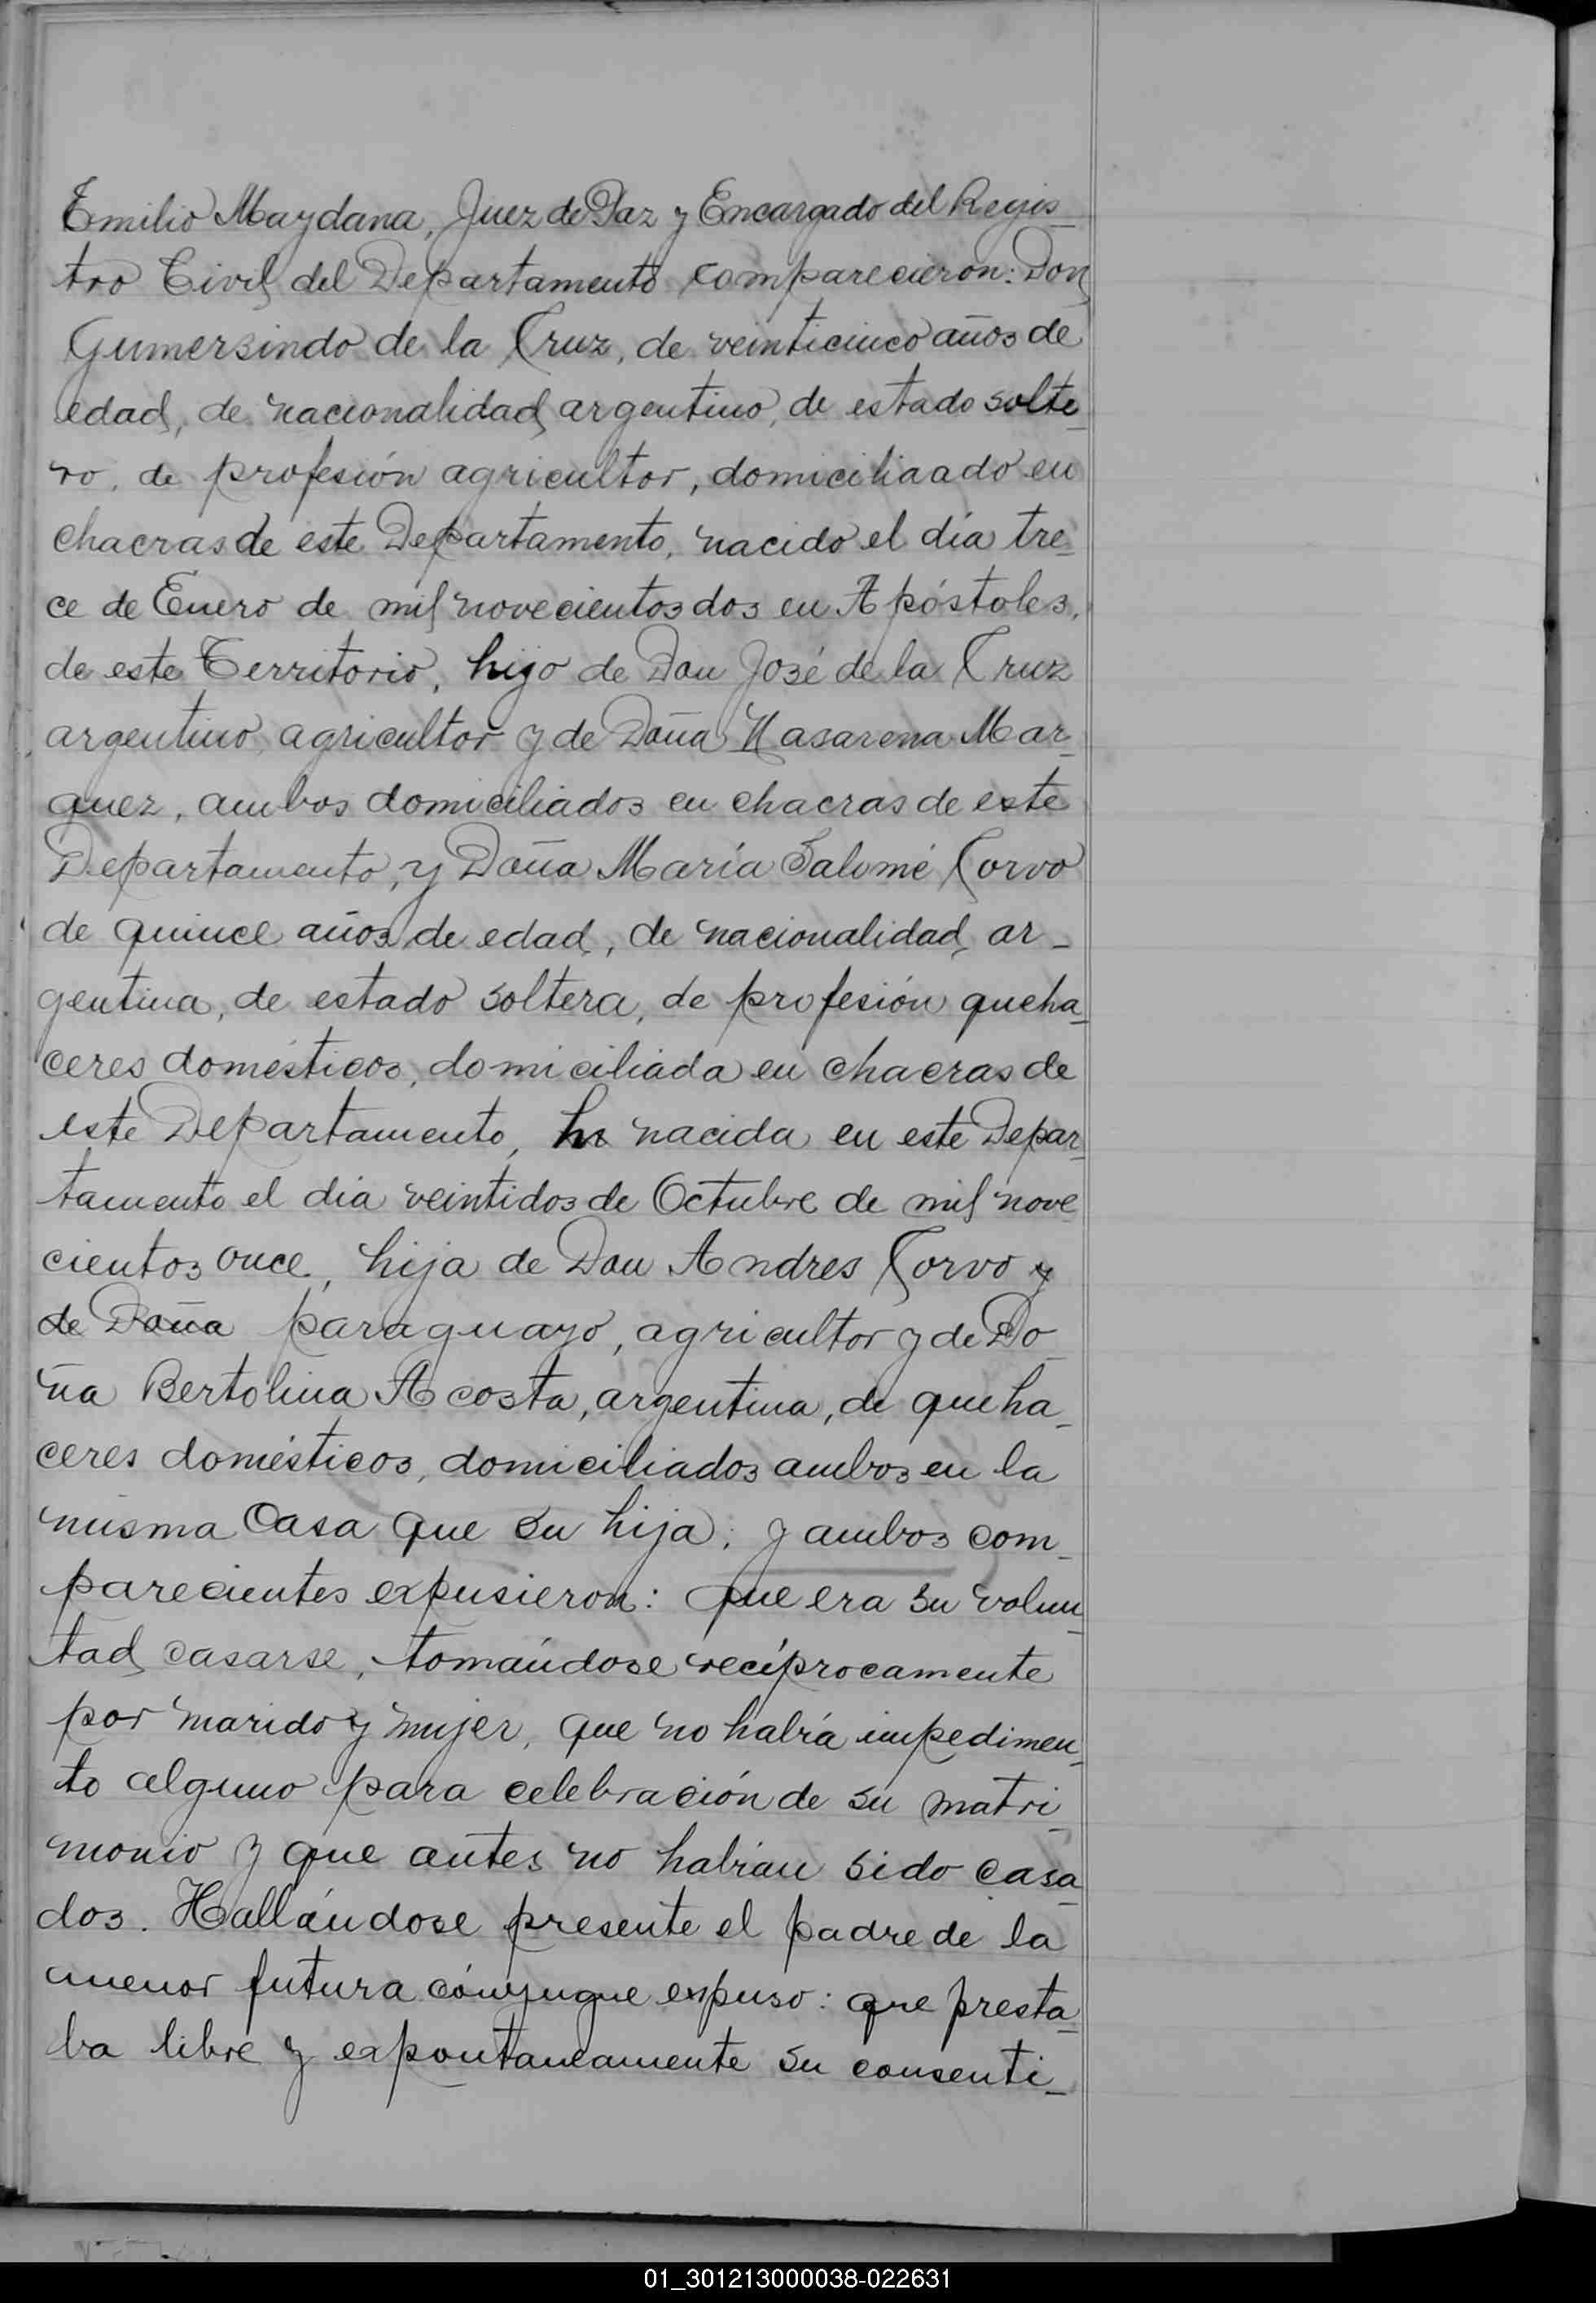 Emilio Maydana, Juez de Paz y Encargado del Regis_
tro Civil del Departamento comparecieron: Don
Gumersindo de la Cruz, de veinticinco años de
edad, de nacionalidad argentino, de estado solte_
ro, de profesión agricultor, domiciliaado en
chacras de este Departamento, nacido el día tre_
ce de Enero de mil novecientos dos en Apóstoles,
de este Territorio, hijo de Don José de la Cruz
argentino, agricultor y de Doña Nasarena Mar_
quez, ambos domiciliados en chacras de este
Departamento, y Doña María Salomé Corvo
de quince años de edad, de nacionalidad, ar_
gentina, de estado soltera, de profesión queha_
ceres domésticos, domiciliada en chacras de
este Departamento, nacida en este Depar_
tamento el día veintidos de Octubre de mil nove_
cientos once, hija de Don Andres Corvo y
de Doña paraguayo, agricultor y de Do_
ña Bertolina Acosta, argentina, de queha_
ceres domésticos, domiciliados ambos en la
misma casa que su hija; y ambos com_
parecientes expusieron: que era su volun_
tad casarse, tomándose recíprocamente
por marido y mujer, que no habría impedimen_
to alguno para celebración de su matri_
monio y que antes no habían sido casa_
dos. Hallándose presente el padre de la
menor futura cónyugue expuso: que presta_
ba libre y expontaneamente su consenti_
01_301213000038-022631